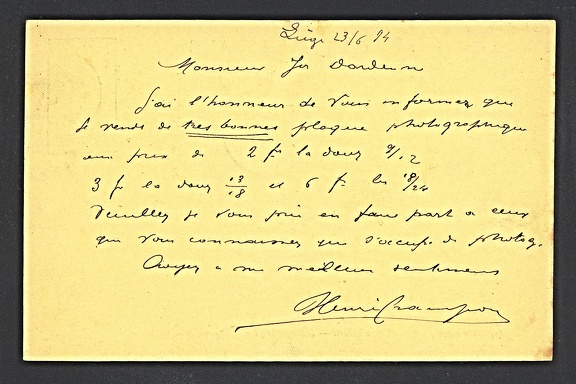 Liège 23/6 94
Monsieur Jos Dardenn
J'ai l'honneur de vous informer que
je vends de très bonnes plaque photographique
aux prix de 2 fr la douz 9/12
3 fr la douz 13/18 et 6 fr les 18/24
Veuillez je vous prie en faire part a ceux
que vous connaissez qui s'occupe de photog.
a mes meilleurs sentiments
Henri